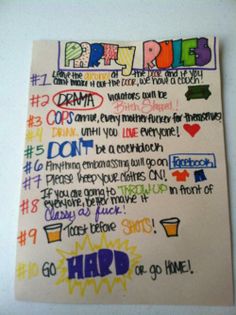 PARTY RULES
#1 Leave the drama at the DOOR and if you
can't make it out the DOOR, we have a couch!
#2 DRAMA violators will be
Bitch Slapped!
#3 COPS arrive, every mother fucker for themselves
#4 DRINK until you LOVE everyone!
#5 DON'T be a cockblock
#6 Anything embarrassing will go on facebook
#7 Please keep your clothes ON!
#8 If you are going to THROW UP in front of
everyone, better make it
Classy as fuck!
#9 Toast before SHOTS!
#10 GO HARD or go HOME!